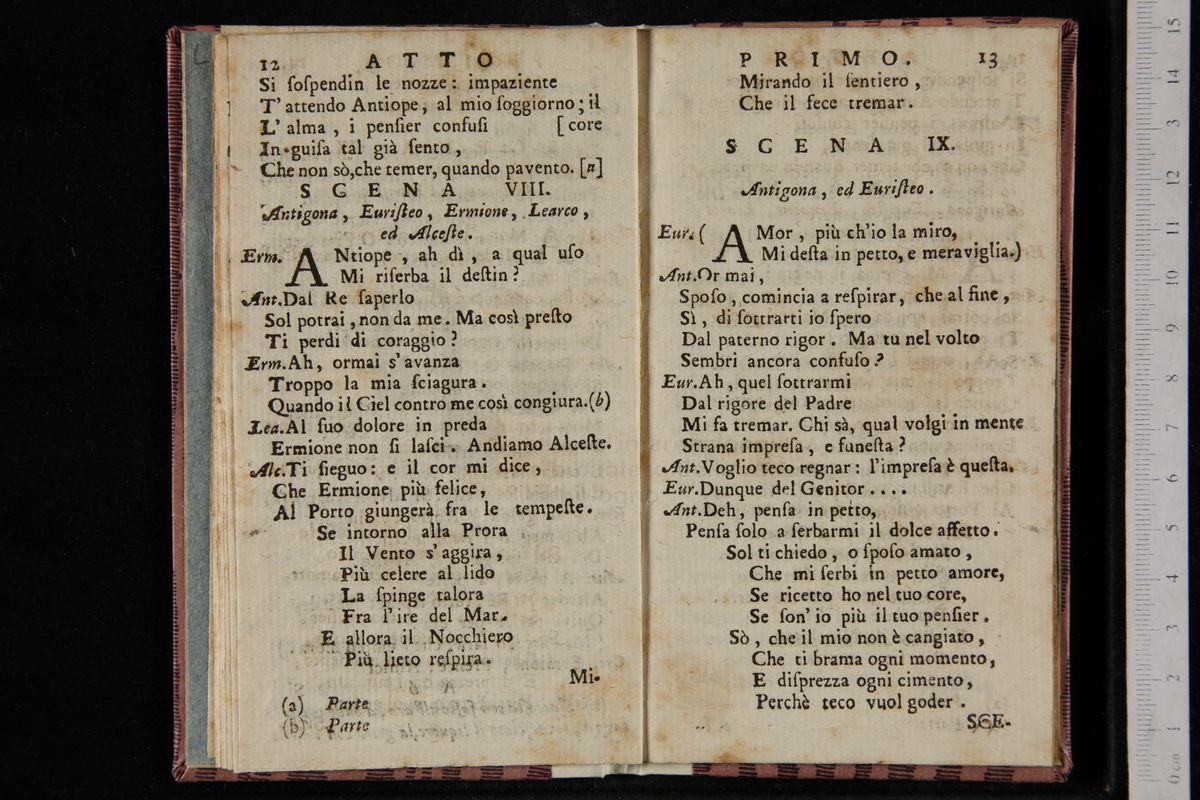 12 ATTO
Si ſoſpendin le nozze: impaziente
T' attendo Antiope, al mio ſoggiorno; il
L' alma, i penſier confuſi [core
In guiſa tal già ſento,
Che non sò, che temer, quando pavento. [a]
SCENA VIII.
Antigona, Euriſteo, Ermione, Learco,
ed Alceſte.
Erm. ANtiope, ah dì, a qual uſo
Mi riſerba il deſtin?
Ant. Dal Re ſaperlo
Sol potrai, non da me. Ma così preſto
Ti perdi di coraggio?
Erm. Ah, ormai s' avanza
Troppo la mia ſciagura.
Quando il Ciel contro me così congiura. (b)
Lea. Al ſuo dolore in preda
Ermione non ſi laſci. Andiamo Alceſte.
Alc. Ti ſieguo: e il cor mi dice,
Che Ermione più felice,
Al Porto giungerà fra le tempeſte.
Se intorno alla Prora
Il Vento s' aggira,
Più celere al lido
La ſpinge talora
Fra l' ire del Mar.
E allora il Nocchiero
Più lieto reſpira.
Mi-
(a) Parte
(b) Parte
PRIMO. 13
Mirando il ſentiero,
Che il fece tremar.
SCENA IX.
Antigona, ed Euriſteo.
Eur. ( AMor, più ch'io la miro,
Mi deſta in petto, e meraviglia.)
Ant. Or mai,
Spoſo, comincia a reſpirar, che al fine,
Sì, di ſottrarti io ſpero
Dal paterno rigor. Ma tu nel volto
Sembri ancora confuſo?
Eur. Ah, quel ſottrarmi
Dal rigore del Padre
Mi fa tremar. Chi sà, qual volgi in mente
Strana impreſa, e funeſta?
Ant. Voglio teco regnar: l'impreſa è queſta.
Eur. Dunque del Genitor....
Ant. Deh, penſa in petto,
Penſa ſolo a ſerbarmi il dolce affetto.
Sol ti chiedo, o ſpoſo amato,
Che mi ſerbi in petto amore,
Se ricetto ho nel tuo core,
Se ſon' io più il tuo penſier.
Sò, che il mio non è cangiato,
Che ti brama ogni momento,
E diſprezza ogni cimento,
Perchè teco vuol goder.
SCE-
0 cm 1 2 3 4 5 6 7 8 9 10 11 12 13 14 15